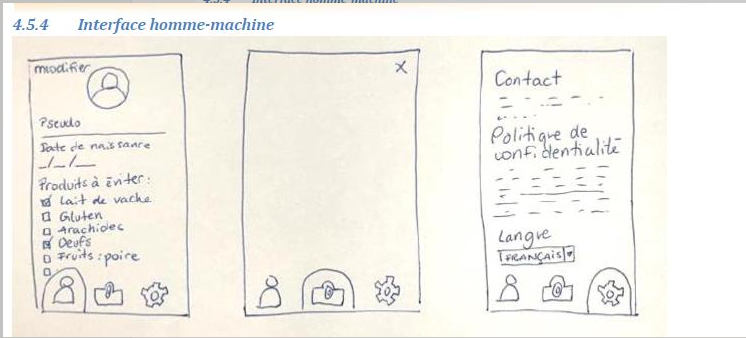 4.5.4 Interface homme-machine
modifier
Pseudo
Date de naissance
_/_/__
Produits à éviter :
Lait de vache
Gluten
Arachides
Oeufs
Fruits : poire
X
Contact
Politique de
confidentialité
Langue
FRANÇAIS